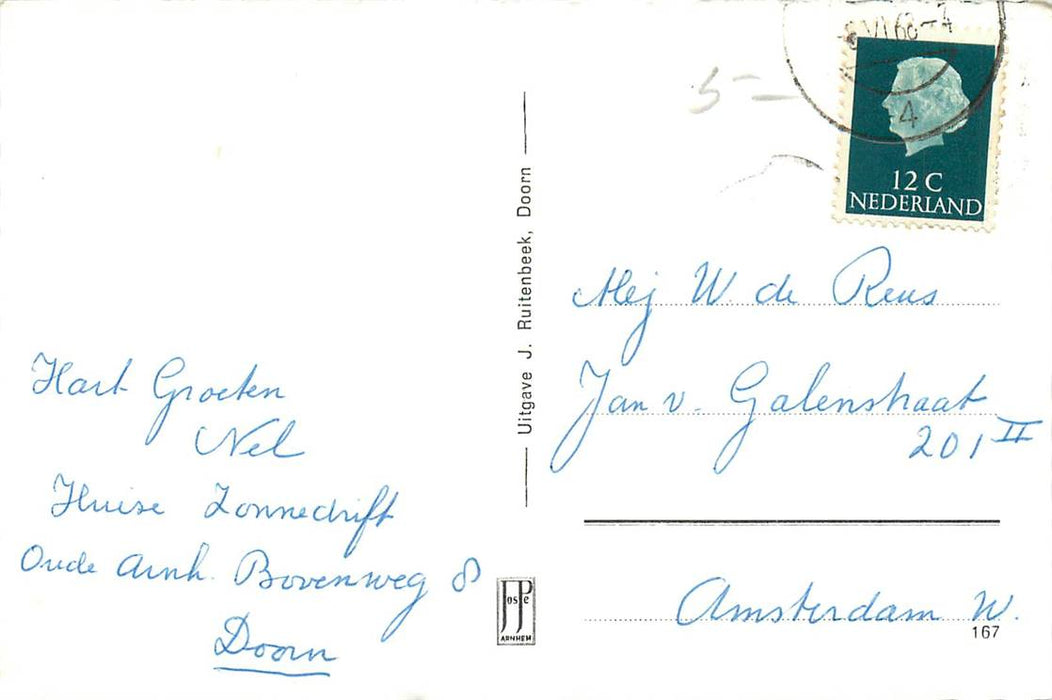 Hart Groeten
Nel
Huize Zonnedrift
Oude Arnh. Bovenweg 8
Doorn
Uitgave J. Ruitenbeek, Doorn
JosPe
ARNHEM
VI.68-
4
12 C
NEDERLAND
Mej W. de Reus
Jan v. Galenstraat
201 II
Amsterdam W.
167